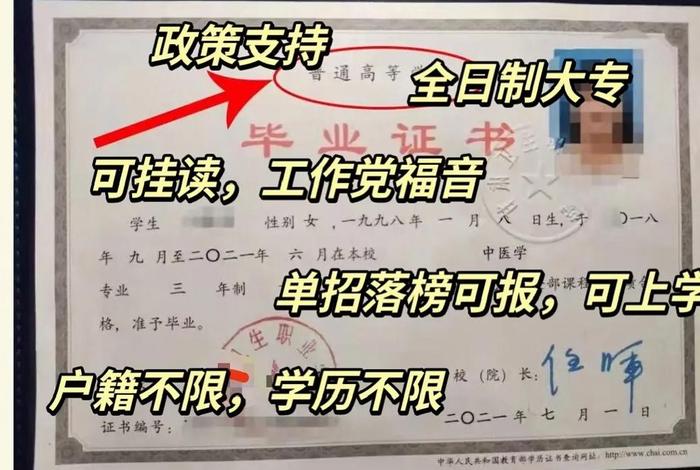 政策支持
普通高等学
全日制大专
毕业证书
可挂读，工作党福音
学生 性别 女，一九九八年 一 月 八 日生，于 〇一八
年 九 月至二〇二一年 六 月在本校 中医学
专业 三 年制
单招落榜可报，可上学
部课程
格，准予毕业。
生职
户籍不限，学历不限
校（院）长：
任晖
证书编号：
二〇二一年 七 月 一 日
中华人民共和国教育部学历证书查询网址：http://www.chsi.com.cn